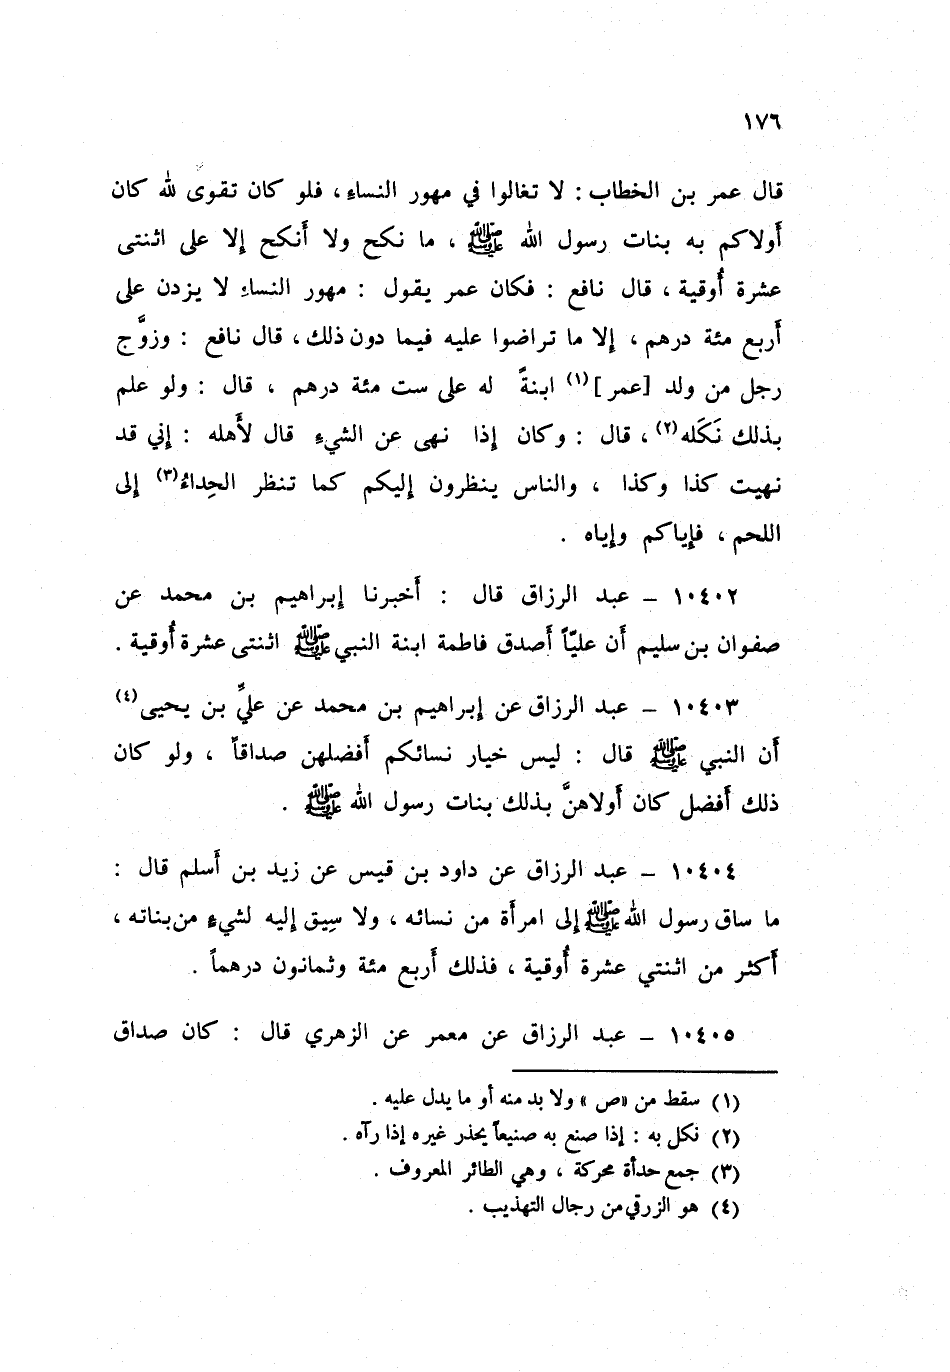 ١٧٦
قال عمر بن الخطاب : لا تغالوا في مهور النساءِ ، فلو كان تقوىً لله كان
أَولاكم به بنات رسول الله ﷺ ، ما نكح ولا أَنكح إلا على اثنتى
عشرة أُوقية ، قال نافع : فكان عمر يقول : مهور النساءِ لا يزدن على
أَربع مئة درهم ، إلا ما تراضوا عليه فيما دون ذلك ، قال نافع : وزوَّج
رجل من ولد [عمر] (١) ابنةً له على ست مئة درهم ، قال : ولو علم
بذلك نَكَله (٢) ، قال : وكان إذا نهى عن الشيءِ قال لأَهله : إني قد
نهيت كذا وكذا ، والناس ينظرون إليكم كما تنظر الحِداءُ (٣) إلى
اللحم ، فإياكم وإياه .
١٠٤٠٢ – عبد الرزاق قال : أَخبرنا إبراهيم بن محمد عن
صفوان بن سليم أَن عليّاً أَصدق فاطمة ابنة النبي ﷺ اثنتى عشرة أُوقية .
١٠٤٠٣ – عبد الرزاق عن إبراهيم بن محمد عن عليِّ بن يحيى (٤)
أَن النبي ﷺ قال : ليس خيار نسائكم أَفضلهن صداقاً ، ولو كان
ذلك أَفضل كان أَولاهنَّ بذلك بنات رسول الله ﷺ .
١٠٤٠٤ – عبد الرزاق عن داود بن قيس عن زيد بن أَسلم قال :
ما ساق رسول الله ﷺ إلى امرأَة من نسائه ، ولا سِيق إليه لشيءٍ من بناته ،
أَكثر من اثنتي عشرة أُوقية ، فذلك أَربع مئة وثمانون درهماً .
١٠٤٠٥ – عبد الرزاق عن معمر عن الزهري قال : كان صداق
(١) سقط من «ص» ولا بد منه أو ما يدل عليه .
(٢) نكل به : إذا صنع به صنيعاً يحذر غيره إذا رآه .
(٣) جمع حدأة محركة ، وهي الطائر المعروف .
(٤) هو الزرقي من رجال التهذيب .